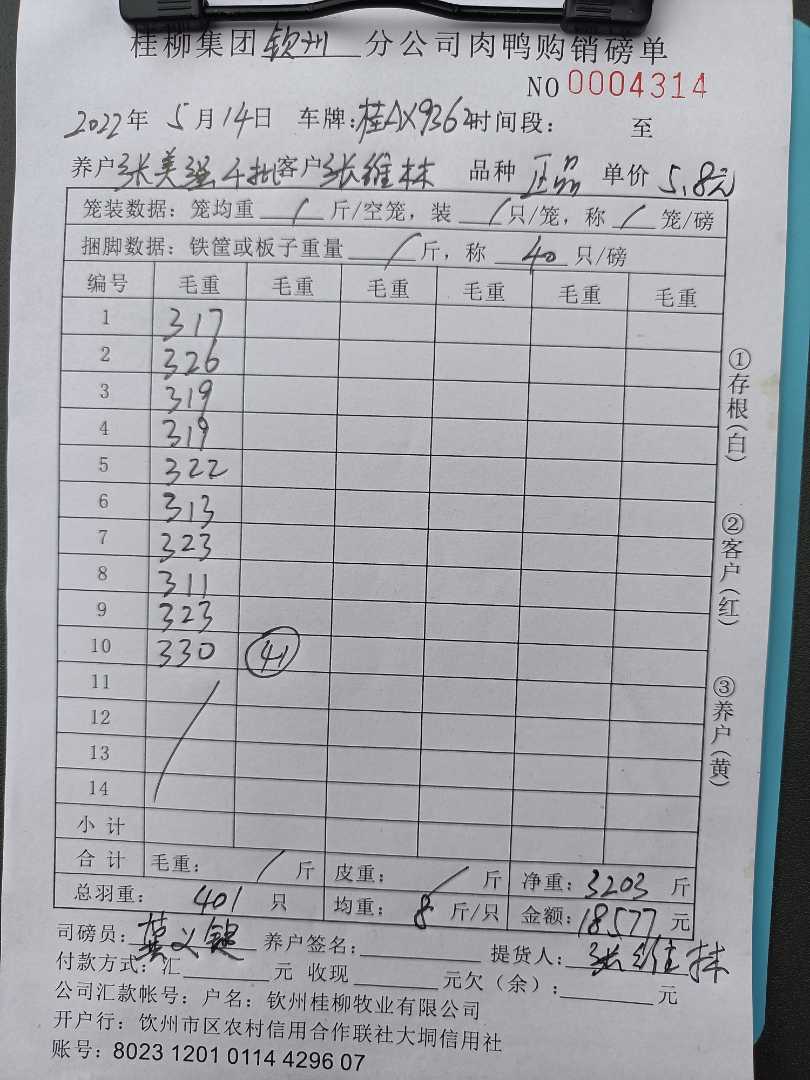 桂柳集团钦州分公司肉鸭购销磅单
NO 0004314
2022年 5月14日 车牌:桂AX9362 时间段: 至
养户 张美强4批 客户 张维林 品种 正品 单价 5.8元
笼装数据: 笼均重 / 斤/空笼, 装 / 只/笼, 称 / 笼/磅
捆脚数据: 铁筐或板子重量 / 斤, 称 40 只/磅
编号 毛重 毛重 毛重 毛重 毛重 毛重
1 317
2 326
3 319
4 319
5 322
6 313
7 323
8 311
9 323
10 330 41
11
12
13
14
小计
合计 毛重: / 斤 皮重: / 斤 净重: 3203 斤
总羽重: 401 只 均重: 8 斤/只 金额: 18577 元
司磅员: 义键 养户签名: 提货人: 张维林
付款方式: 汇 元 收现 元欠(余): 元
公司汇款帐号: 户名: 钦州桂柳牧业有限公司
开户行: 钦州市区农村信用合作联社大垌信用社
账号: 8023 1201 0114 4296 07
①存根(白)
②客户(红)
③养户(黄)